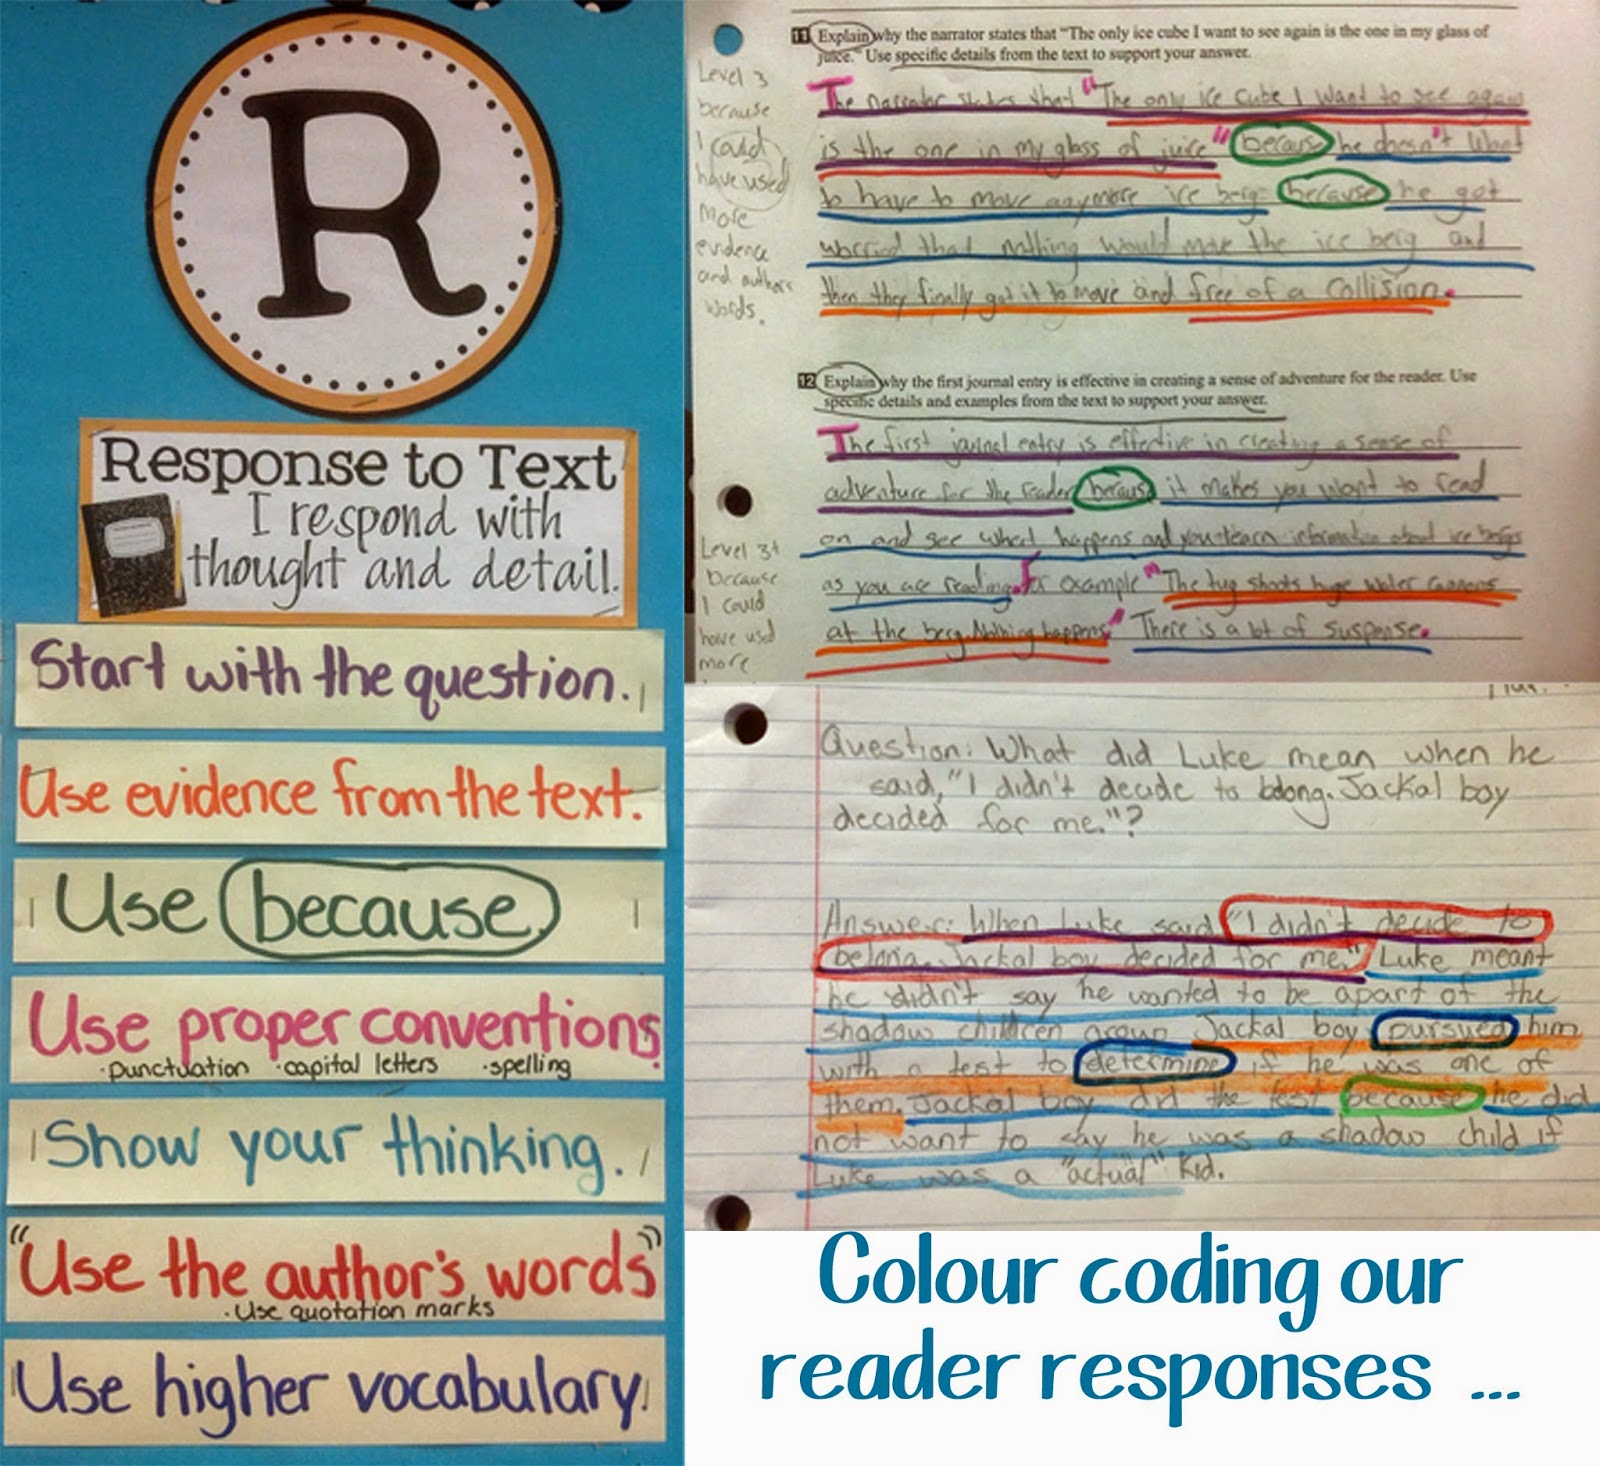 R
Response to Text
I respond with
thought and detail.
Start with the question.
Use evidence from the text.
Use because
Use proper conventions
·punctuation ·capital letters ·spelling
Show your thinking.
"Use the author's words"
·Use quotation marks
Use higher vocabulary.
11 Explain why the narrator states that "The only ice cube I want to see again is the one in my glass of
juice." Use specific details from the text to support your answer.
Level 3
because
I could
have used
more
evidence
and authors
words.
The narrator states that "The only ice cube I want to see again
is the one in my glass of juice" because he doesn't want
to have to move anymore ice berg because he got
worried that nothing would move the ice berg and
then they finally got it to move and free of a collision.
12 Explain why the first journal entry is effective in creating a sense of adventure for the reader. Use
specific details and examples from the text to support your answer.
Level 3+
because
I could
have used
more
The first journal entry is effective in creating a sense of
adventure for the reader becaus it makes you want to read
on and see what happens and you learn information about ice bergs
as you are reading. For example "The tug shoots huge water cannons
at the berg. Nothing happens" There is a lot of suspense.
Question: What did Luke mean when he
said, "I didn't decide to bdong. Jackal boy
decided for me."?
Answer: When Luke said "I didn't decide to
belong. Jackal boy decided for me." Luke meant
he didn't say he wanted to be apart of the
shadow children group Jackal boy pursued him
with a test to determine if he was one of
them. Jackal boy did the test because he did
not want to say he was a shadow child if
Luke was a "actual" kid.
Colour coding our
reader responses ...